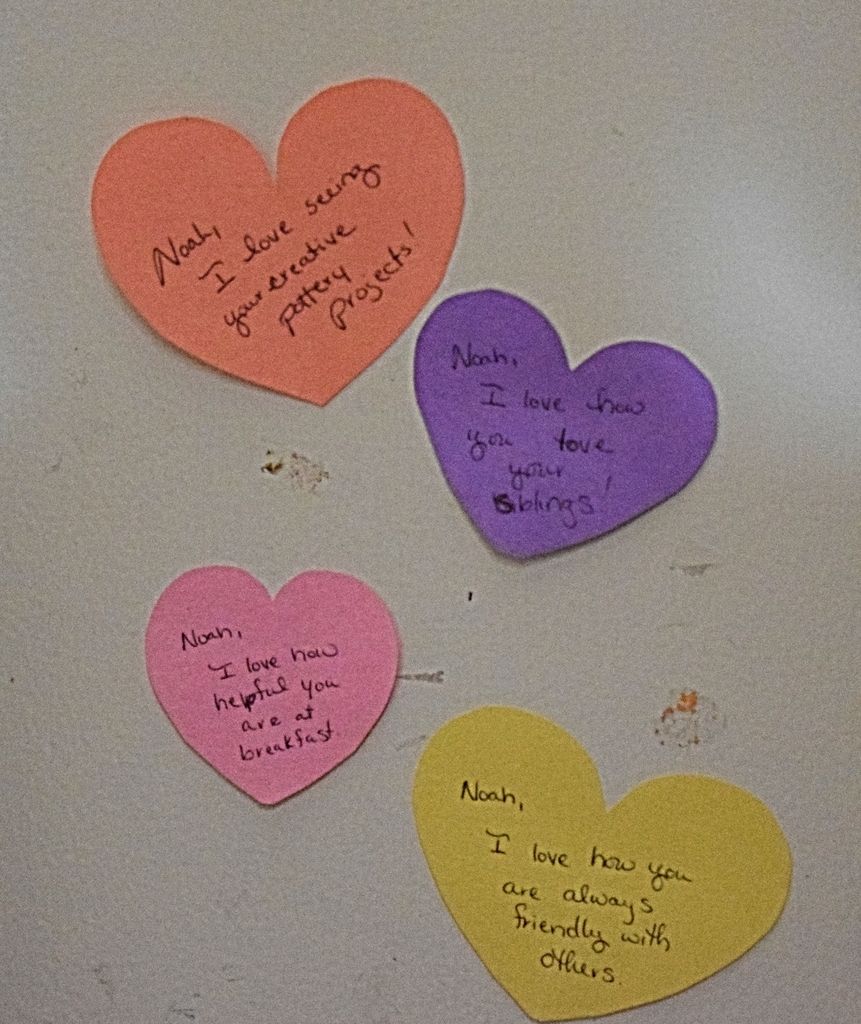 Noah,
I love seeing
your creative
pottery
projects!
Noah,
I love how
you love
your
siblings!
Noah,
I love how
helpful you
are at
breakfast.
Noah,
I love how you
are always
friendly with
others.